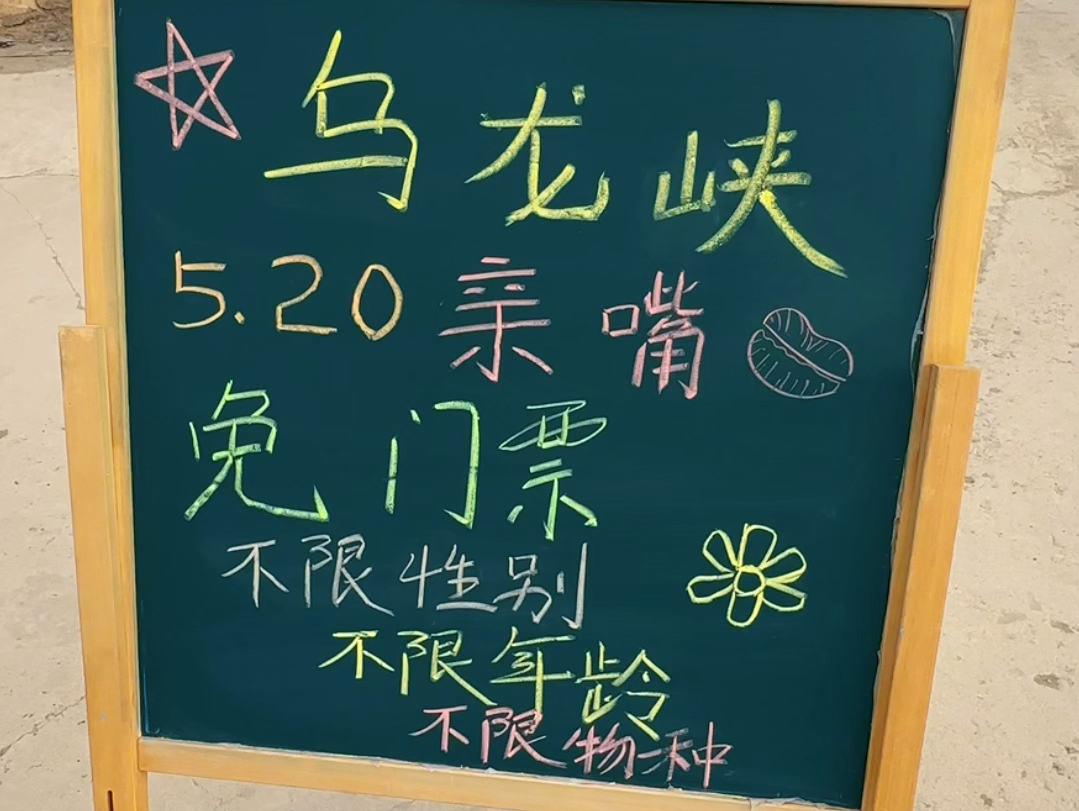 乌龙峡
5.20亲嘴
免门票
不限性别
不限年龄
不限物种